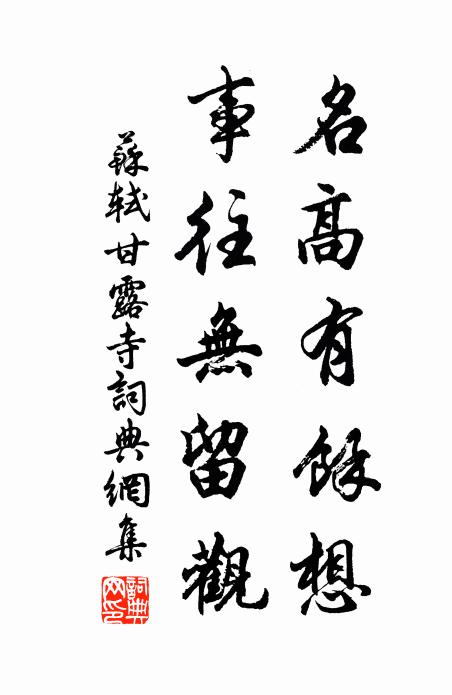 名高有餘想
事往無留觀
蘇軾甘露寺詞典網集
詞典網印